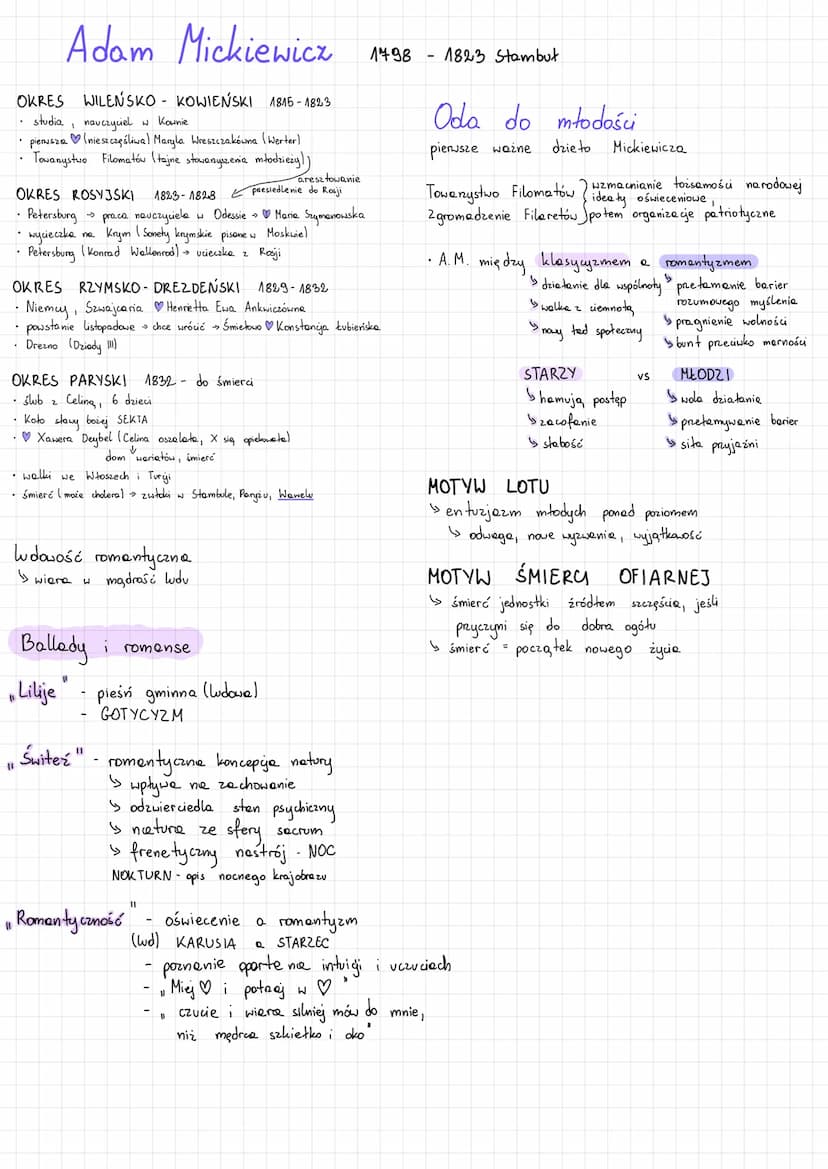 Adam Mickiewicz 1798 - 1823 Stambuł
OKRES WILEŃSKO - KOWIEŃSKI 1815 - 1823
· studia, nauczyciel w Kownie
· pierwsza 💜 (nieszczęśliwa) Maryla Wreszczakówna (Werter)
· Towarzystwo Filomatów (tajne stowarzyszenia młodzieży)
aresztowanie
przesiedlenie do Rosji
OKRES ROSYJSKI 1823 - 1828
· Petersburg → praca nauczyciela w Odessie → 💜 Maria Szymanowska
· wycieczka na Krym (Sonety krymskie pisane w Moskwie)
· Petersburg (Konrad Wallenrod) → ucieczka z Rosji
OKRES RZYMSKO - DREZDEŃSKI 1829 - 1832
· Niemcy, Szwajcaria 💜 Henrietta Ewa Ankwiczówna
· powstanie listopadowe → chce wrócić → Śmiełowo 💜 Konstancja Łubieńska
· Drezno (Dziady III)
OKRES PARYSKI 1832 - do śmierci
· ślub z Celiną, 6 dzieci
· Koło sławy bożej SEKTA
· 💜 Xawera Deybel (Celina oszalała, X się opiekowała)
↓
dom wariatów, śmierć
· walki we Włoszech i Turcji
· śmierć (może cholera) → zwłoki w Stambule, Paryżu, Wawelu
ludowość romantyczna
↳ wiara w mądrość ludu
Ballady i romanse
"Lilije" - pieśń gminna (ludowa)
- GOTYCYZM
"Świteź" - romantyczna koncepcja natury
↳ wpływa na zachowanie
↳ odzwierciedla stan psychiczny
↳ natura ze sfery sacrum
↳ frenetyczny nastrój - NOC
NOKTURN - opis nocnego krajobrazu
"Romantyczność" - oświecenie a romantyzm
(lud) KARUSIA a STARZEC
- poznanie oparte na intuicji i uczuciach
- "Miej ♡ i patrzaj w ♡"
- "czucie i wiara silniej mów do mnie,
niż mędrca szkiełko i oko"
Oda do młodości
pierwsze ważne dzieło Mickiewicza
Towarzystwo Filomatów
Zgromadzenie Filaretów
wzmacnianie tożsamości narodowej
ideały oświeceniowe,
potem organizacje patriotyczne
· A.M. między klasycyzmem a romantyzmem
↳ działanie dla wspólnoty
↳ walka z ciemnotą
↳ nowy ład społeczny
↳ przełamanie barier
rozumowego myślenia
↳ pragnienie wolności
↳ bunt przeciwko marności
STARZY vs MŁODZI
↳ hamują postęp
↳ zacofanie
↳ słabość
↳ wola działania
↳ przełamywanie barier
↳ siła przyjaźni
MOTYW LOTU
↳ entuzjazm młodych ponad poziomem
↳ odwaga, nowe wyzwania, wyjątkowość
MOTYW ŚMIERCI OFIARNEJ
↳ śmierć jednostki źródłem szczęścia, jeśli
przyczyni się do dobra ogółu
↳ śmierć = początek nowego życia